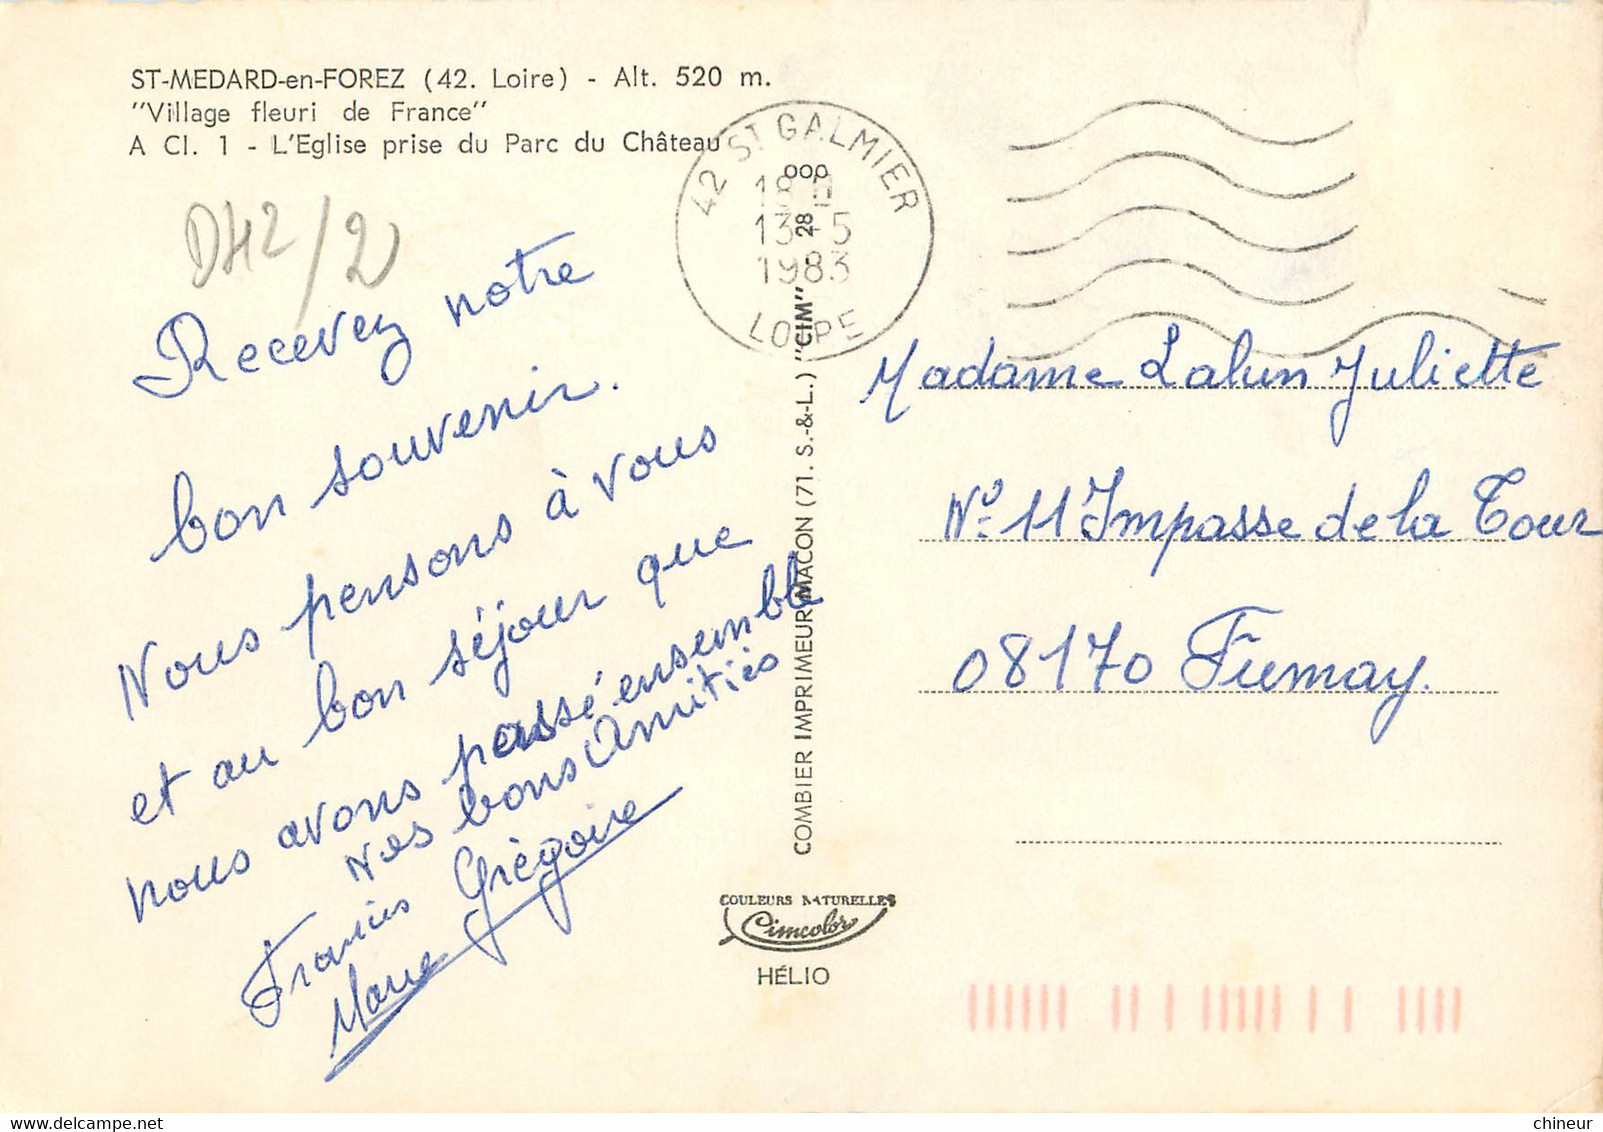 ST-MEDARD-en-FOREZ (42. Loire) - Alt. 520 m.
"Village fleuri de France"
A Cl. 1 - L'Eglise prise du Parc du Château
D42/2
Recevez notre
bon souvenir.
Nous pensons à vous
et au bon séjour que
nous avons passé ensemble
Nos bons Amitiés
Francis Grégoire
Marie
42 ST GALMIER
18 H
13-5
1983
LOIRE
COMBIER IMPRIMEUR MACON (71. S.-&-L.) "CIM" 28 000
COULEURS NATURELLES
Cimcolor
HÉLIO
Madame Lalun Juliette
N° 11 Impasse de la Tour
08170 Fumay.
delcampe.net
chineur